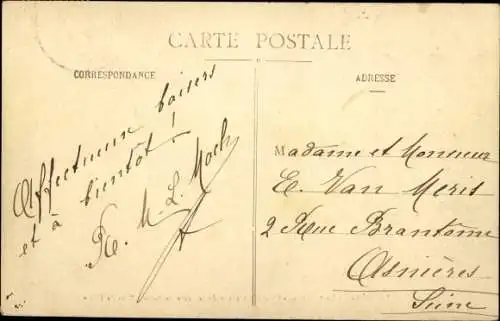 CARTE POSTALE
CORRESPONDANCE
Affectueux baisers
et à bientôt !
M. L. Moch
ADRESSE
Madame et Monsieur
E. Van Meris
2 Rue Brantôme
Asnières
Seine